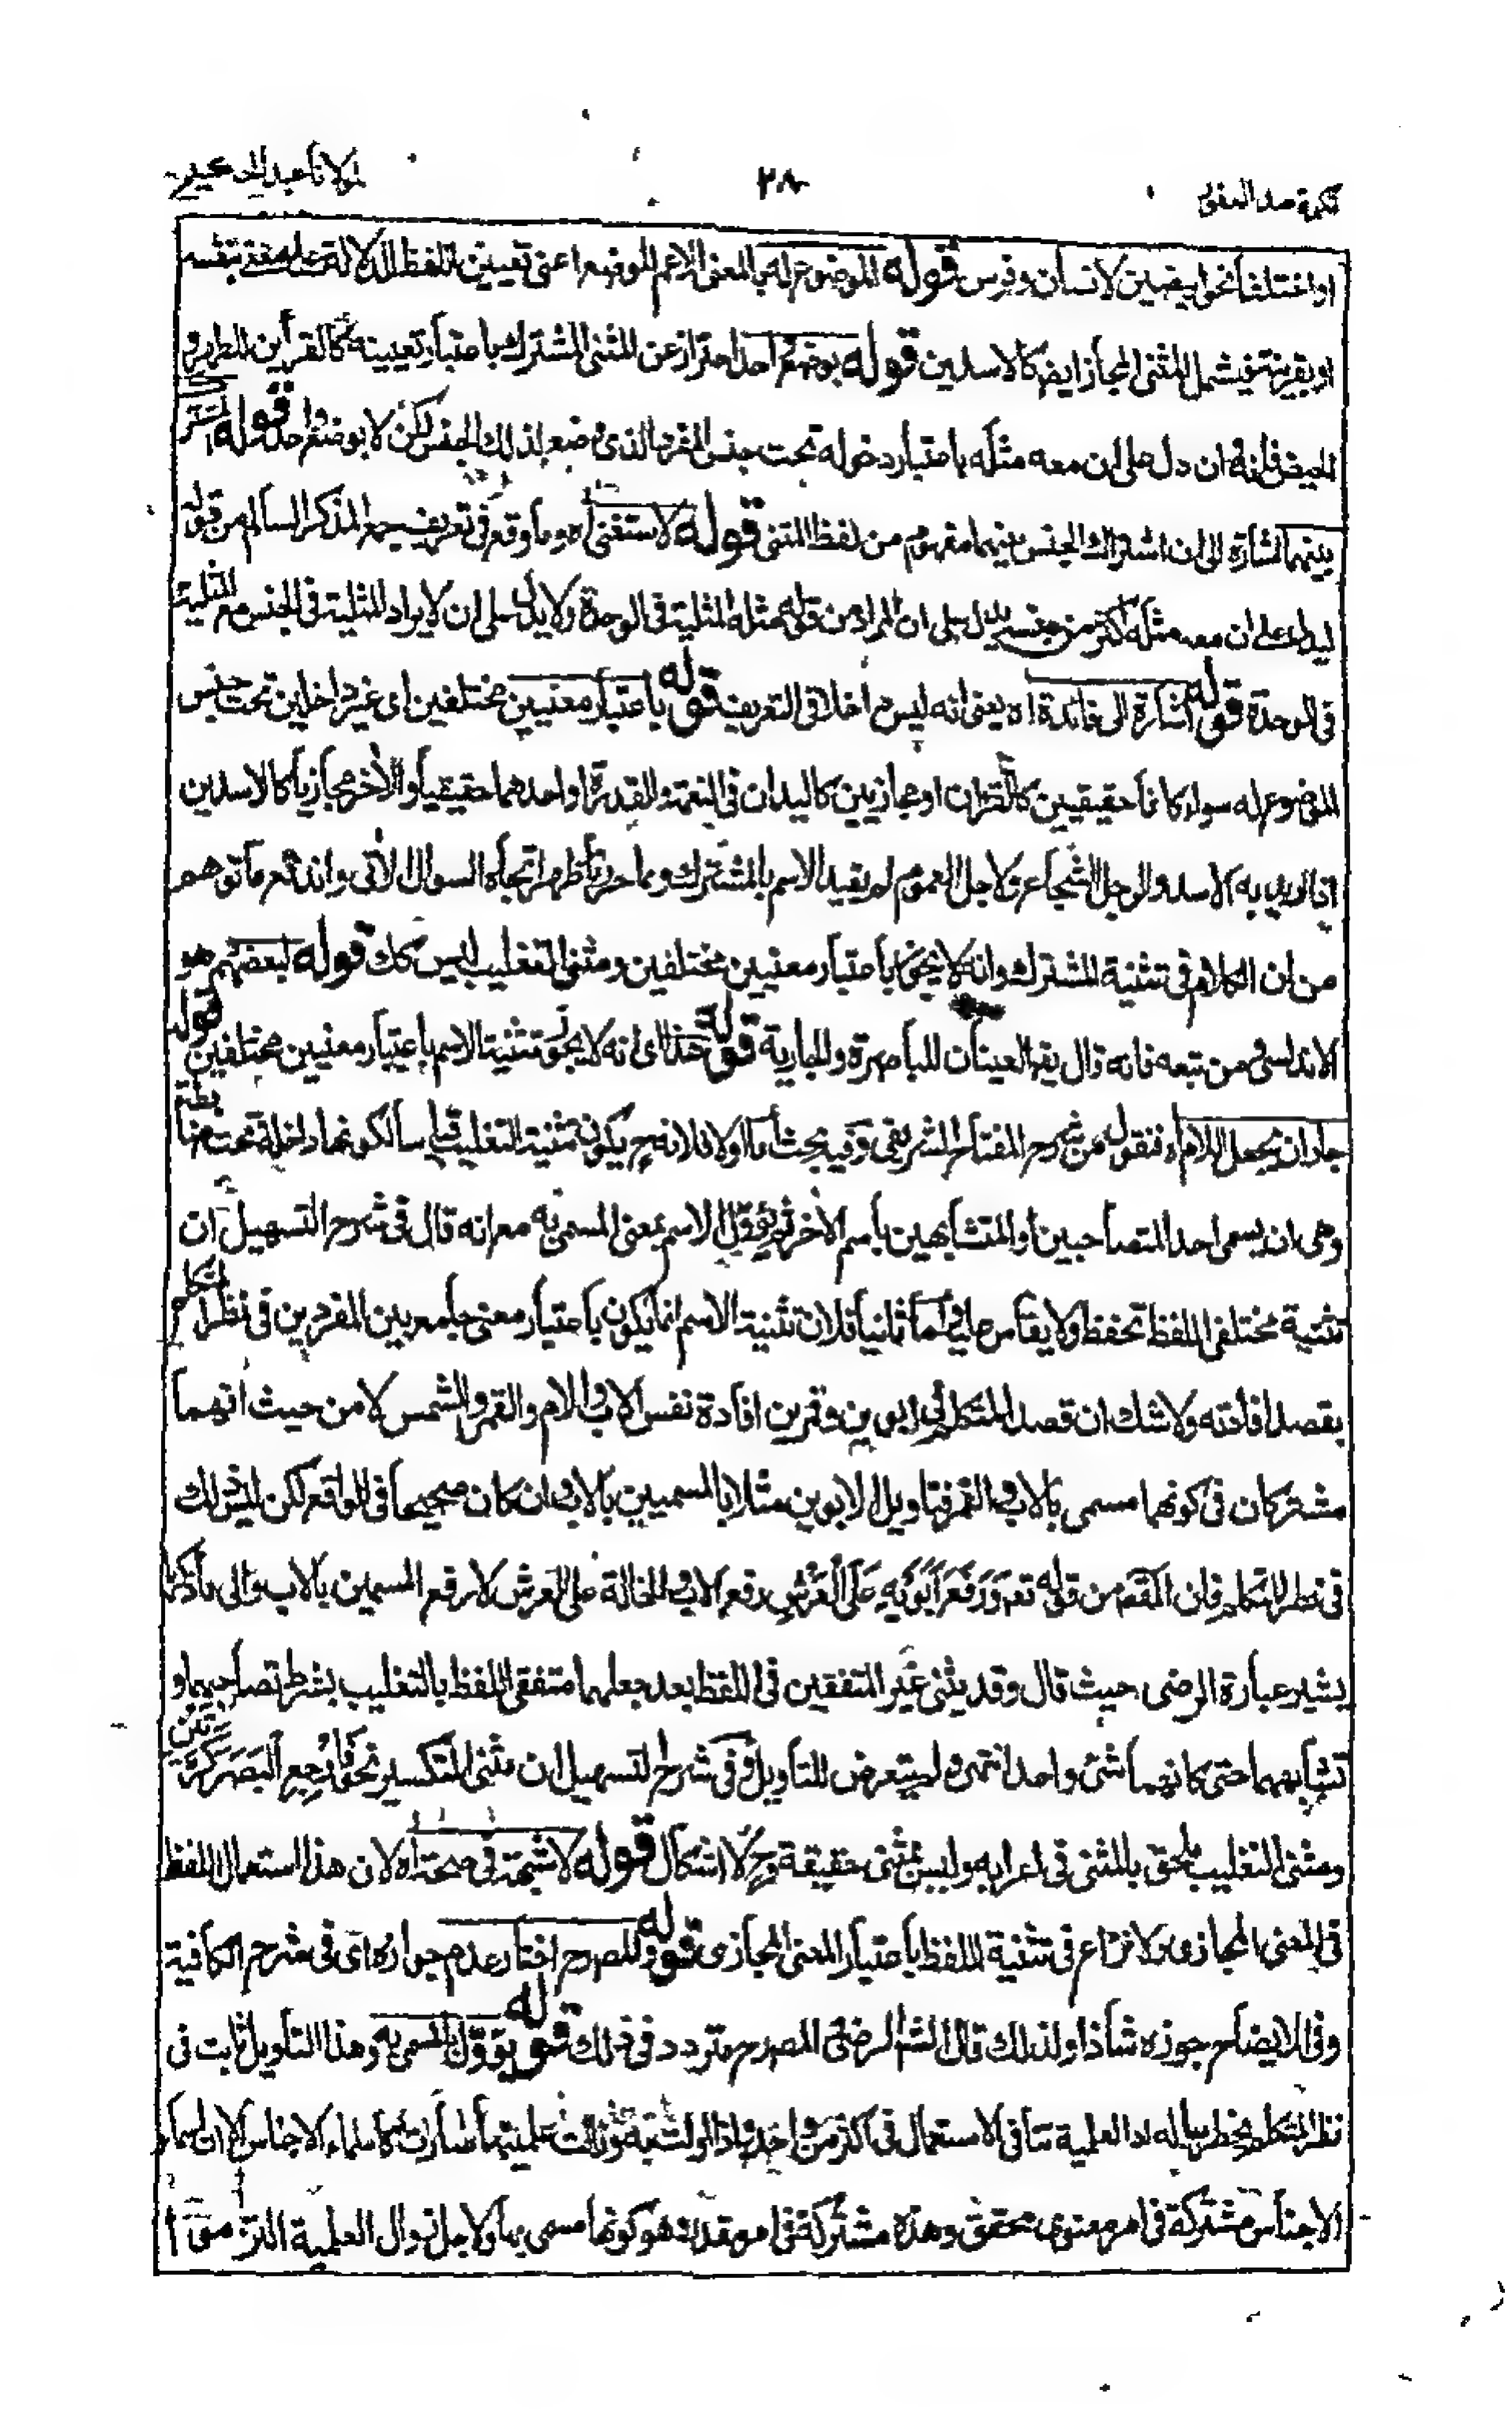 تكملة عبد الغفور
٢٨
لمولانا عبد الحكيم
او اختلفا نحو ابيضين لانسان وفرس قوله الموضوع له بالمعنى الاعم للوضع اعنى تعيين اللفظ للدلالة على معنى بنفسه
او بقرينة فيشمل المثنى المجاز ايضا كالاسدين قوله بوضع احد احتراز عن المثنى المشترك باعتبار تعيينه كالقرأين للطهر و
الحيض فانه وان دل على ان معه مثله باعتبار دخوله تحت جنس المفرد الذى وضع لذلك الجنس لكن لا بوضع واحد قوله
بينهما اشارة الى ان اشتراك الجنس بينهما مفهوم من لفظ المثنى قوله لاستغنى اه وما وقع فى تعريف جمع المذكر السالم من قوله
ليدل على ان معه مثله اكثر من جنسه يدل على ان المراد من قوله مثله المثلية فى الوحدة ولا يدل على ان لا يراد المثلية فى الجنس مع المثلية
فى الوحدة قوله اشارة الى فائدة اه يعنى انه ليس داخلا فى التعريف قوله باعتبار معنيين مختلفين اى غير داخلين تحت جنس
الموضوع له سواء كانا حقيقيين كالقرأن او مجازيين كاليدان فى النعمة والقدرة او احدهما حقيقيا والأخر مجازيا كالاسدين
اذا اريد به الاسد والرجل الشجاع ولاجل العموم لم يقيد الاسم بالمشترك وبما حررنا ظهر اتجاه السوال الأتى واندفع ما توهم
من ان الكلام فى تثنية المشترك وانه لا يجوز باعتبار معنيين مختلفين ومثنى التغليب ليس كك قوله لبعضهم هو
الاندلسى ومن تبعه فانه قال يقال العينان للباصرة والجارية قوله هذا اى انه لا يجوز تثنية الاسم باعتبار معنيين مختلفين قوله
جاز ان يجعل اللام اه فنقول من شرح المفتاح الشريفى وفيه بحث اما اولا فلانه ح يكون تثنية التغليب قياسا لكونها داخلة تحت
وهى ان يسمى احد المتصاحبين او المتشابهين باسم الأخر ثم يؤوّل الاسم بمعنى المسمى به مع انه قال فى شرح التسهيل ان
تثنية مختلفى اللفظ تحفظ ولا يقاس عليها واما ثانيا فلان تثنية الاسم انما يكون باعتبار معنى جامع بين المفردين فى نظر المتكلم
يقصد افادته ولا شك ان قصد المتكلم فى ابوين وقمرين افادة نفس الاب والام والقمر والشمس لا من حيث انهما
مشتركان فى كونهما مسمى بالاب والقمر فتاويل الابوين مثلا بالمسميين بالاب وان كان صحيحا فى الواقع لكن ليس ذلك
فى نظر المتكلم فان المقصود من قوله تعم وَرَفَعَ اَبَوَيْهِ عَلَى الْعَرْشِ رفع الاب والخالة على العرش لا رفع المسمين بالاب والى ما ذكرنا
يشير عبارة الرضى حيث قال وقد يثنى غير المتفقين فى اللفظ بعد جعلهما متفقى اللفظ بالتغليب بشرط تصاحبهما و
تشابههما حتى كانهما شئ واحد انتهى ولم يتعرض للتاويل وفى شرح التسهيل ان مثنى التكسير نحو فَارْجِعِ الْبَصَرَ كَرَّتَيْنِ
ومثنى التغليب ملحق بالمثنى فى اعرابه وليس بمثنى حقيقة وح لا اشكال قوله لا شبهة فى صحته اه لان هذا استعمال اللفظ
فى المعنى المجازى ولا نزاع فى تثنية اللفظ باعتبار المعنى المجازى قوله والمصرح اختار عدم جوازه اى فى شرح الكافية
وفى الايضاح جوزه شاذا ولذلك قال الشم الرضى المصرح متردد فى ذلك قوله يؤوّل بالمسمى به وهذا التأويل ثابت فى
نظر المتكلم يخطر بباله اذ العلمية تنافى الاستعمال فى اكثر من واحد
الاجناس مشتركة فى امر معنوى محقق وهذه مشتركة فى امر مقدر وهو كونها مسمى بها ولاجل زوال العلمية التزموا